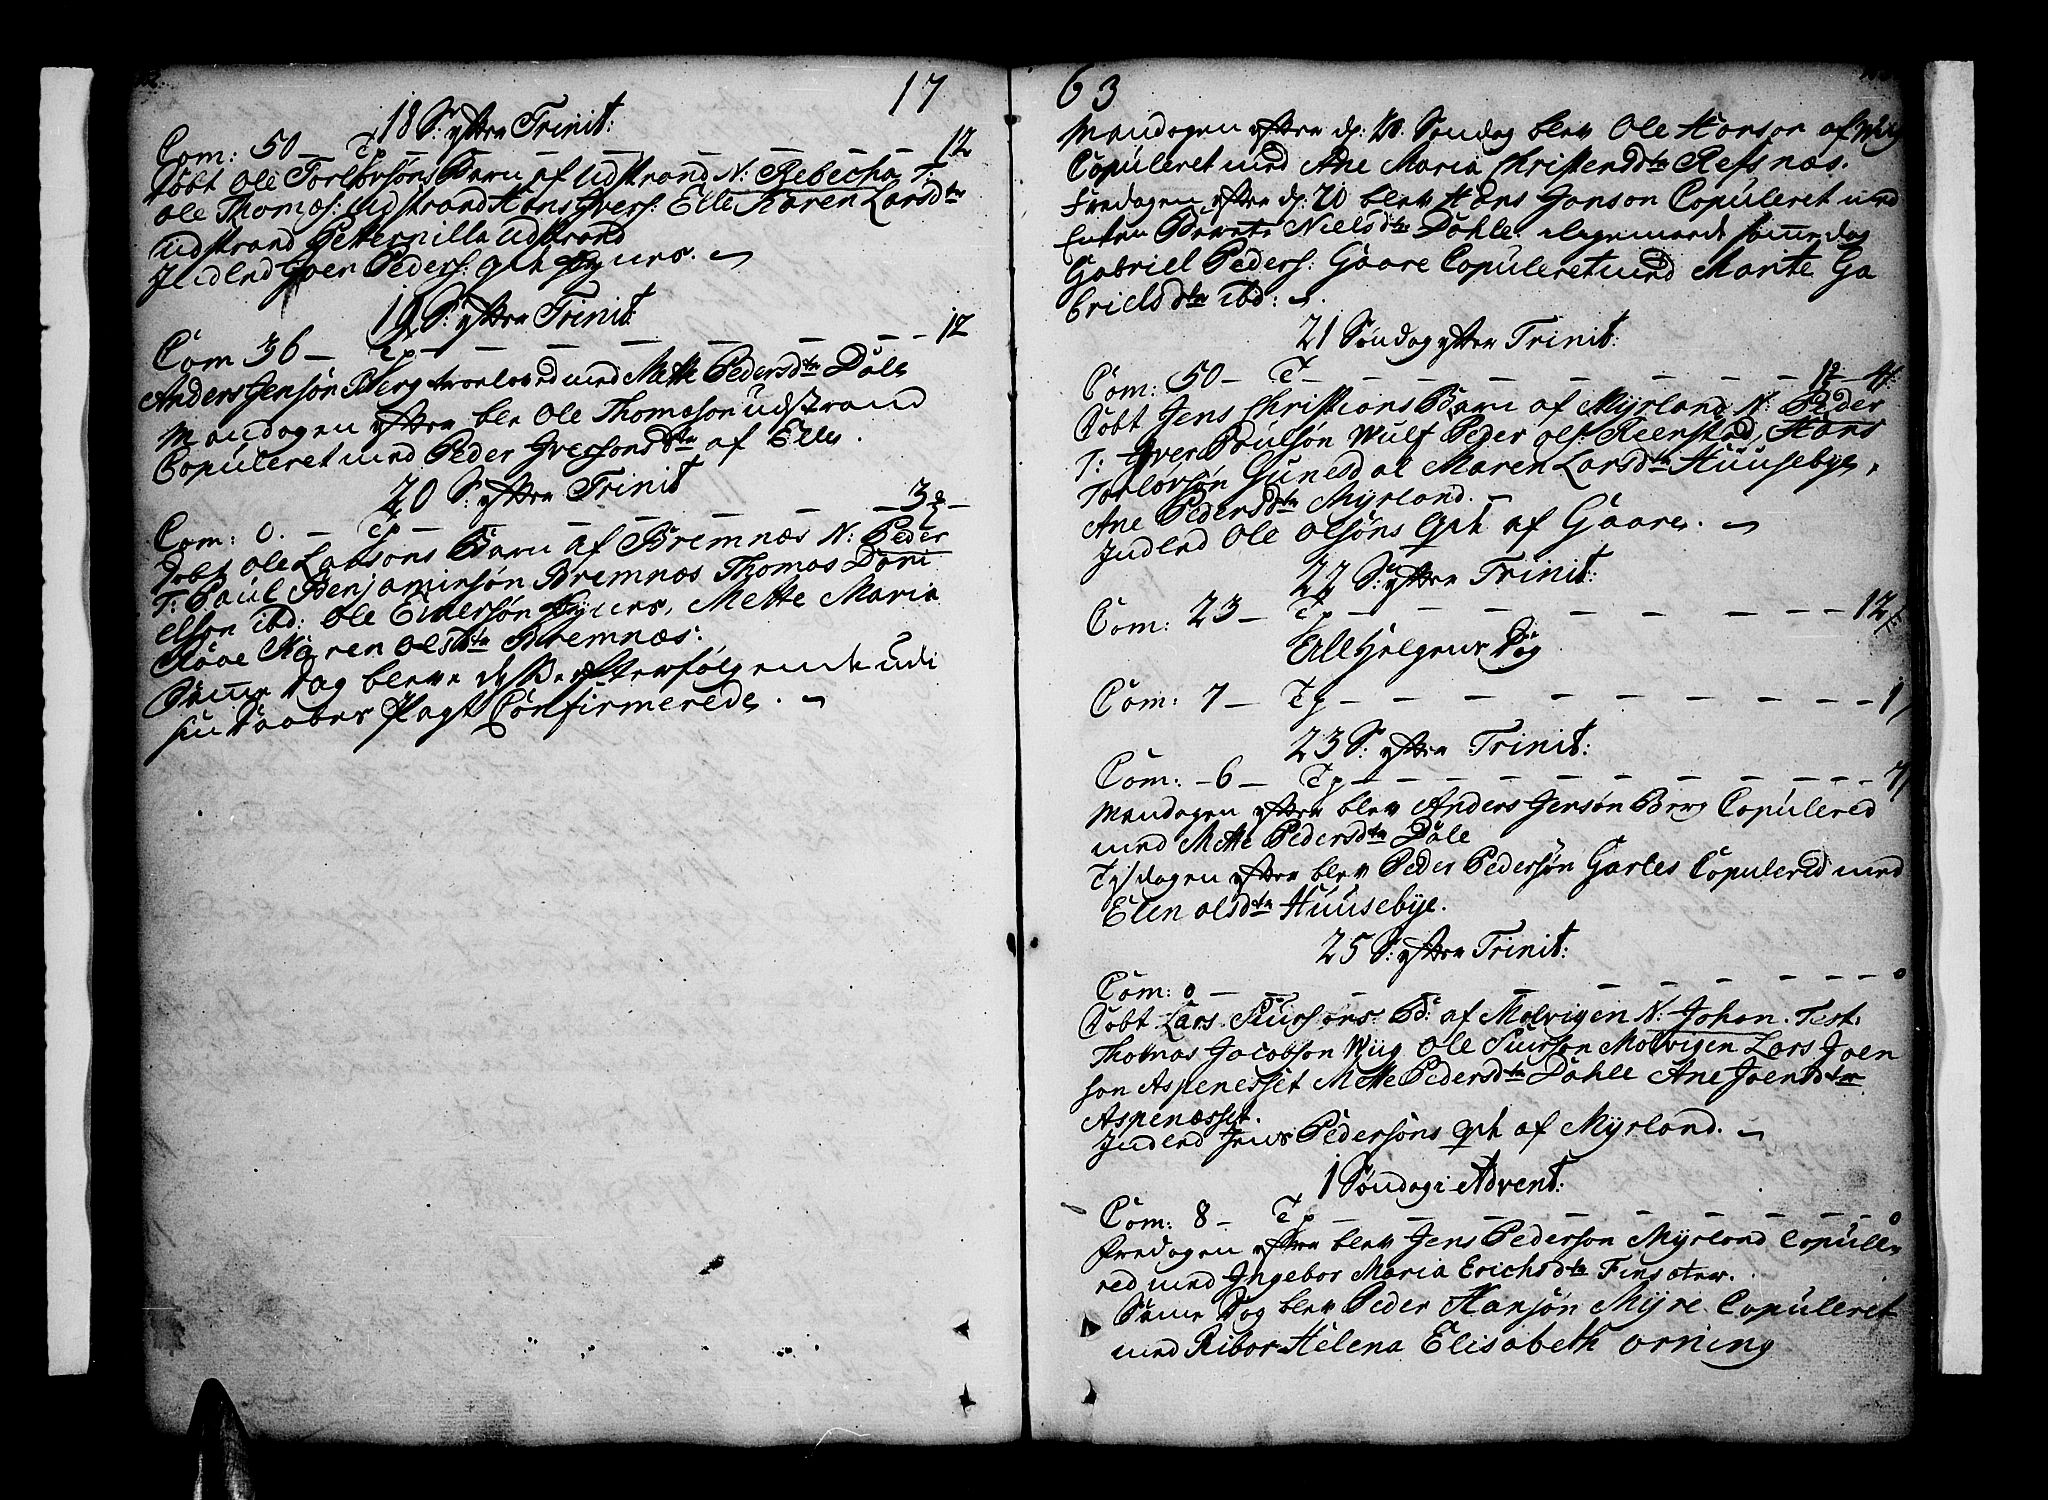 17
18 S: efter Trinit:
Com: 50 — Tp — — — — — — — 12
Døbt Ole Torlorsøns Barn af Udstrand N: Rebecha T:
Ole Thomæs: Udstrand Hans Ivers: Elle Karen Larsdtr
Udstrand Petternilla Udstrand
Indled Joen Peders:
19 S: efter Trinit:
Com 36 — Tp — — — — — — — 12
Anders Jensøn Berg troeloved med Mette Pedersdtr Dale
Mandagen efter blev Ole Thomæson Udstrand
Copuleret med Peder Iversons dtr af Elle.
20 S: efter Trinit
Com: 0. — Tp — — — — — — 3
Døbt Ole Larsons Barn af Bremnæs N: Peder
T: Paul Benjaminsøn Bremnæs Thomas Dani
elson ibd: Ole Einersøn Mette Maria
Røoe Karen Olsdtr Bremnæs:
Samme Dag bleve disse efterfølgende udi
sin Daabes Pagt Confirmerede. —
63
Mandagen efter d: 20 Søndag blev Ole Hanson af Wiig
Copuleret med Ane Maria Christensdtr Refsnæs.
Fredagen efter d: 20 blev Hans Janson Copuleret med
Enken Berete Nielsdtr Dahle samme dag
Gabriel Peders: Gaare Copuleret med Marite Ga
brielsdtr ibd: —
21 Søndag efter Trinit:
Com: 50 — T — — — — — — — 12 — 4
Døbt Jens Christians Barn af Myrland N: Peder
T: Iver Poulsøn Wulf Peder Ols: Reenstad, Hans
Torlorsøn Gunesdal Maren Larsdtr Huusebye,
Ane Pedersdtr Myrland.
Indled Ole Olsøns af Gaare. —
22 S: efter Trinit:
Com: 23 — Tp — — — — — — — 12
All Helgens Dag
Com: 7 — Tp — — — — — — — 1
23 S: efter Trinit:
Com: — 6 — Tp — — — — — — — 7
Mandagen efter blev Anders Jensøn Berg Copulered
med Mette Pedersdtr Dale
Tijsdagen efter blev Peder Pedersøn Garles Copulered med
Elen Olsdtr Huusebye.
25 S: efter Trinit:
Com: 0 — — — — — — — 0
Døbt Lars Siursons Bd: af Molvigen N: Johan. Test:
Thomas Jacobson Wiig Ole Siurson Molvigen Lars Joen
son Aspenesset Mette Pedersdtr Dahle Ane Joensdtr
Aspenæsset.
Indled Jens Pedersøns af Myrland. —
1 Søndag i Advent:
Com: 8 — Tp — — — — — — — 0
Fredagen efter blev Jens Pederson Myrland Copule
red med Ingebor Maria Erichsdtr Finsæter.
Samme Dag blev Peder Hansøn Myre Copuleret
med Ribor Helena Elisabeth Orning